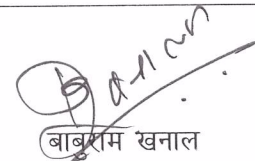 बाबुराम खनाल